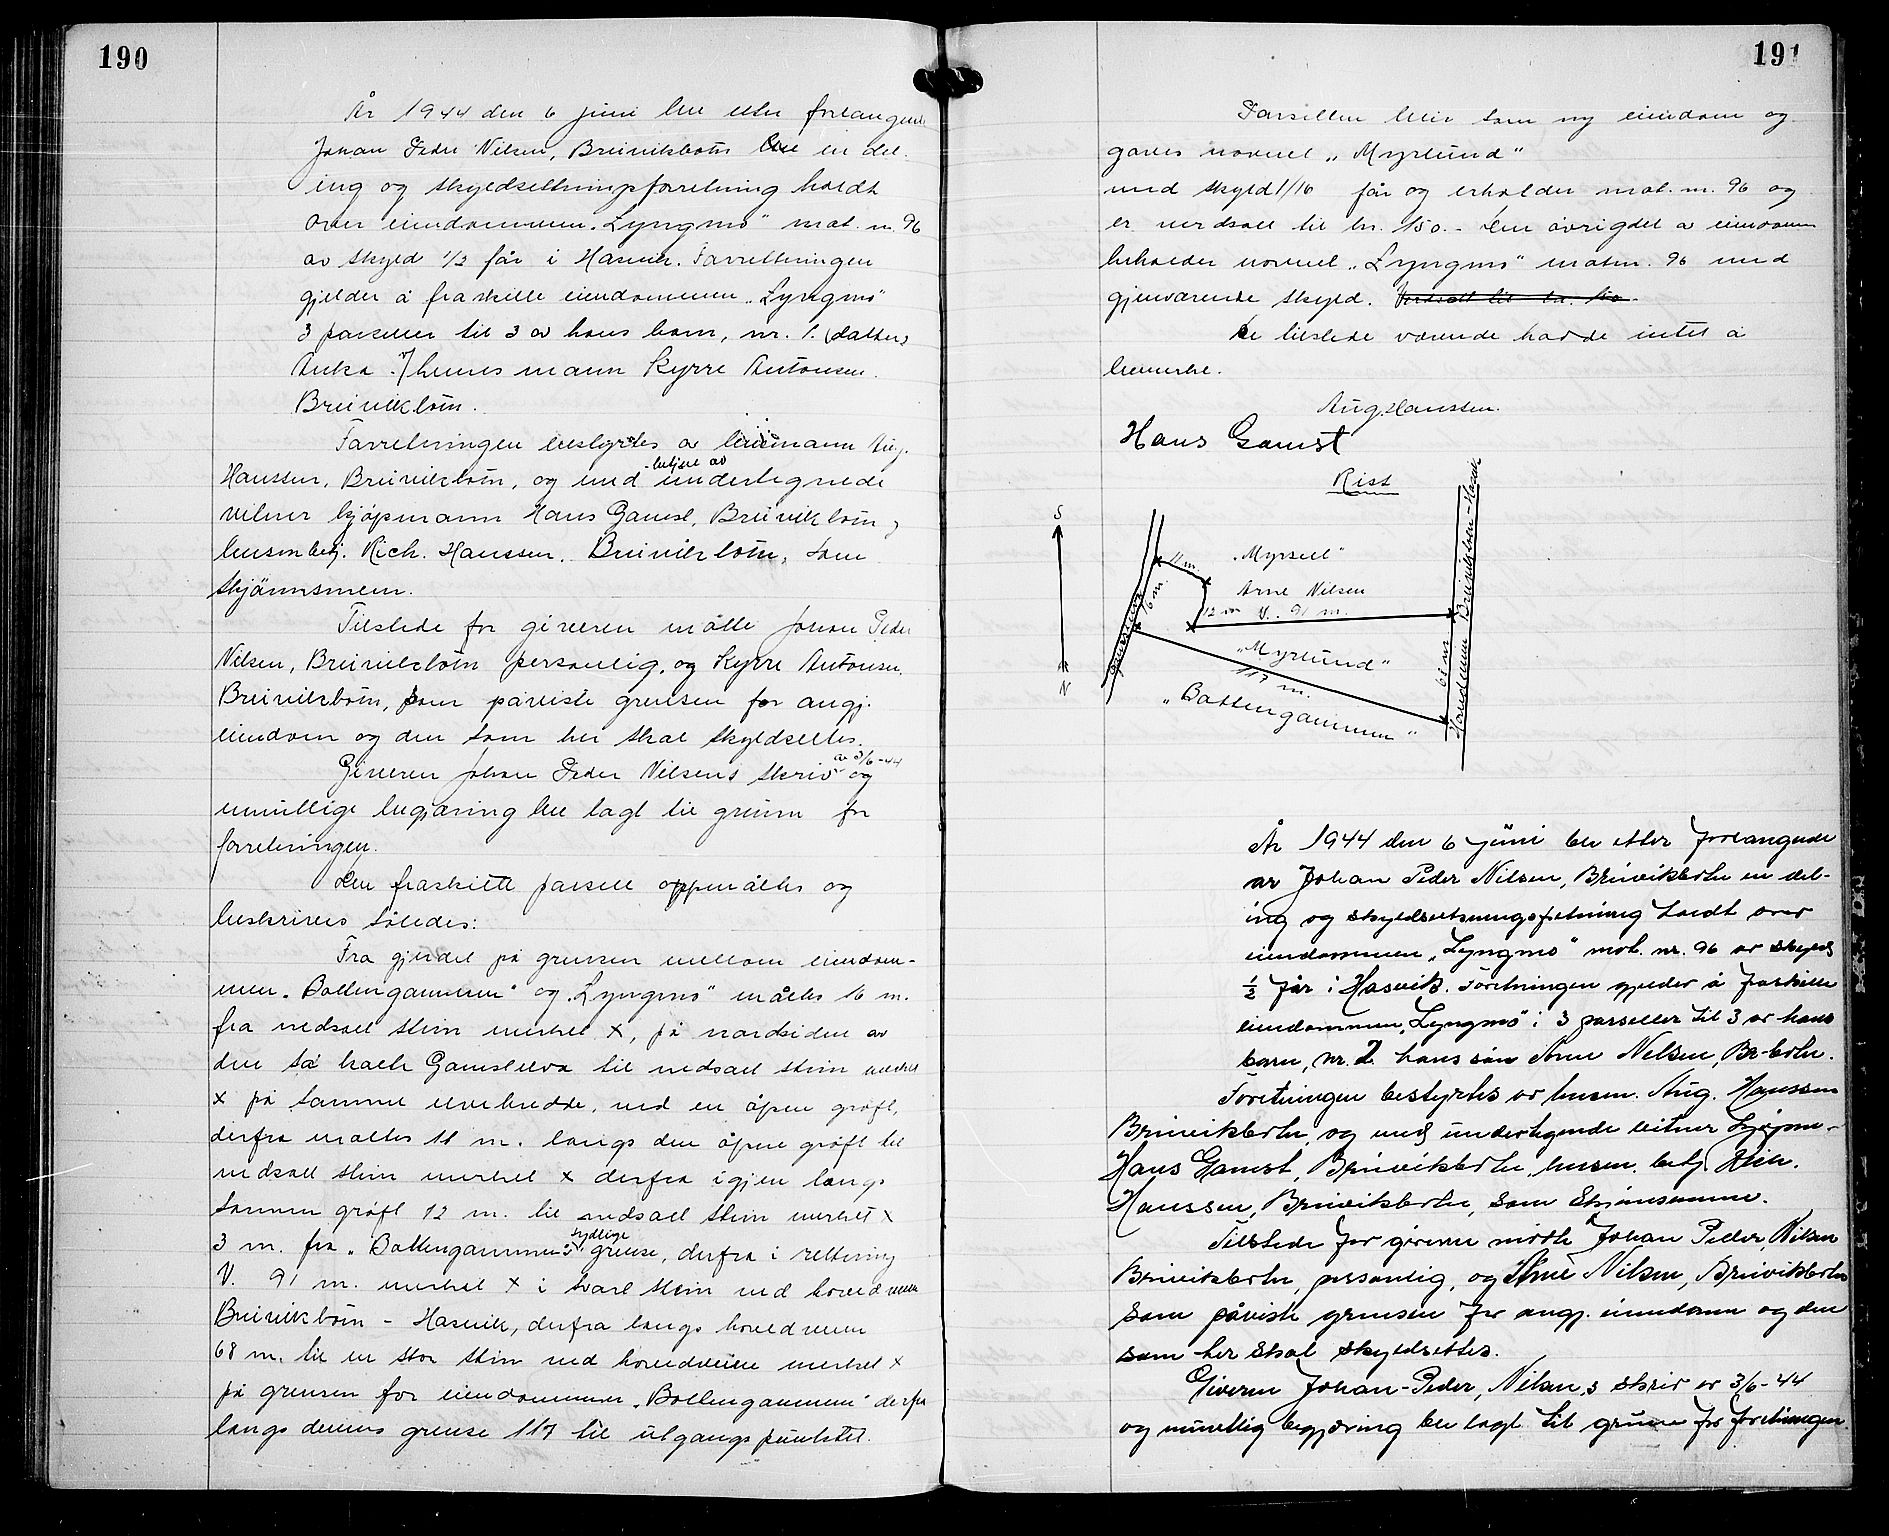 190
År 1944 den 6 juni ble etter forlangende
Johan Peder Nilsen, Breivikbotn ble en del-
ing og skyldsettningsforretning holdt
over eiendommen „Lyngmo" mat. nr. 96
av skyld 1/2 får i Hasvik. Forrettningen
gjelder å fraskille eiendommen „Lyngmo"
3 parseller til 3 av hans barn, nr. 1. (datter)
Anka J hennes mann Kyrre Antonsen.
Breivikbotn.
Forretningen bestyrtes av lensmann Aug.
Hanssen, Breivikbotn, og med betjent av undertegnede
vitner kjøpmann Hans Gamst, Breivikbotn,
lensm.betj. Rich. Hanssen. Breivikbotn, som
skjønnsmenn.
Tilstede for giveren møtte Johan Peder
Nilsen, Breivikbotn personlig, og Kyrre Antonsen.
Breivikbotn, som påviste grensen for angj.
eiendom og den som her skal skyldsettes.
Giveren Johan Peder Nilsens skriv av 3/6-44 og
muntlige begjæring ble lagt til grunn for
forretningen.
Den fraskilte parsell oppmåltes og
beskrives således:
Fra gjerdet på grensen mellom eiendom-
men „Bottengammen" og „Lyngmo" måltes 16 m.
fra nedsatt sten merket x, på nordsiden av
den så kalte Gamstelva til nedsatt sten merket
x på samme elvebredde, ved en åpen grøft,
derfra måltes 11 m. langs den åpne grøft til
nedsatt sten merket x derfra igjen langs
samme grøft 12 m. til nedsatt sten merket x
3 m. fra „Bottengammens" sydlige grense, derfra i rettning
V. 91 m. merket x i svart sten ved hovedveien
Breivikbotn - Hasvik, derfra langs hovedveien
68 m. til en stor sten ved hovedveien merket x
på grensen for eiendommen „Bottengammen" derfra
langs dennes grense 117 til utgangspunktet.
191
Parsellen blir som ny eiendom og
gaves navnet „Myrlund"
med skyld 1/16 får og erholder mat. nr. 96 og
er verdsatt til kr. 150.- Den øvrigdel a eiendommen
beholder navnet „Lyngmo" matnr. 96 med
gjenværende skyld. Verdsatt til kr. 150.
De tilstede værende hadde intet å
bemerke.
Aug. Hanssen.
Hans Gamst
Riss
S
N
11 m.
„Myrsell"
Arne Nilsen
6 m.
12 m
V. 91 m.
„Myrlund"
117 m.
„Bottengammen"
68 m
Hovedveien Breivikbotn - Hasvik
År 1944 den 6 juni ble etter forlangende
av Johan Peder Nilsen, Breivikbotn en del-
ing og skyldsetningsfretning holdt over
eiendommen „Lyngmo" mat. nr. 96 av skyld
1/2 får i Hasvik. Foretningen gjelder å fraskille
eiendommen „Lyngmo" i 3 parseller til 3 av hans
barn, nr. 2. hans søn Arne Nilsen, Br-botn.
Foretningen bestyrtes av lensm. Aug. Hanssen
Breivikbotn, og med undertegnede vitner kjøpm.
Hans Gamst, Breivikbotn, lensm. betj. Rich.
Hanssen, Breivikbotn, som skjønsmenn.
Tilstede for giveren møtte Johan Peder Nilsen
Breivikbotn, personlig, og Arne Nilsen, Breivikbotn
som påviste grensen for angj. eiendom og den
som her skal skyldsettes.
Giveren Johan-Peder, Nilsen,s skriv av 3/6-44
og muntlig begjæring ble lagt til grunn for foretningen.